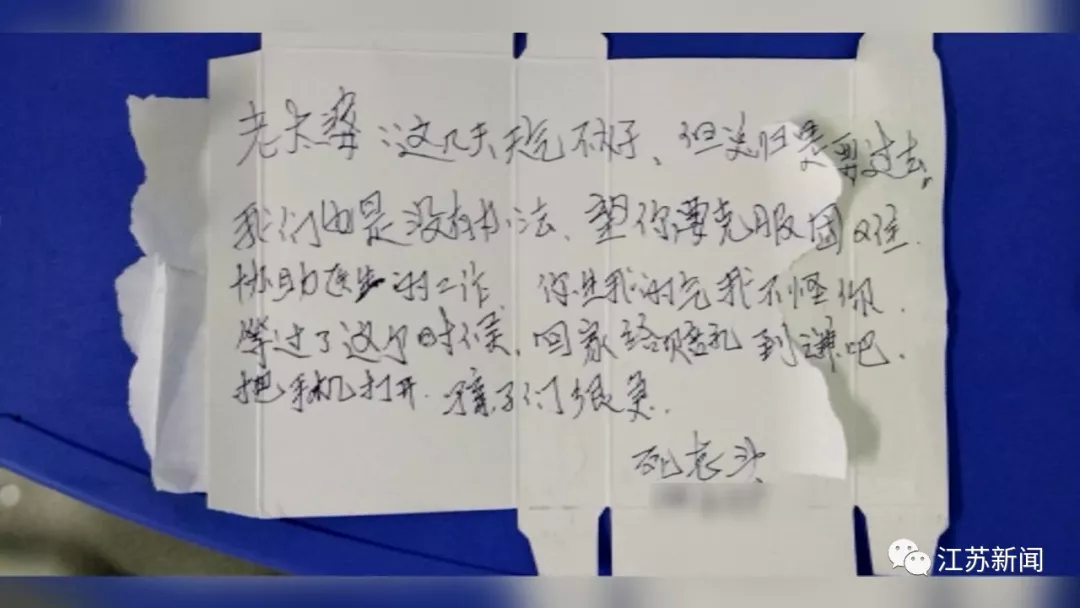 老太婆：这几天天气不好、但总归是要过去。
我们也是没有办法、望你要克服困难.
协助医生的工作. 你生我的气我不怪你.
等过了这个时候. 回家给你赔礼到谦吧.
把手机打开. 孩子们很急.
死老头
江苏新闻